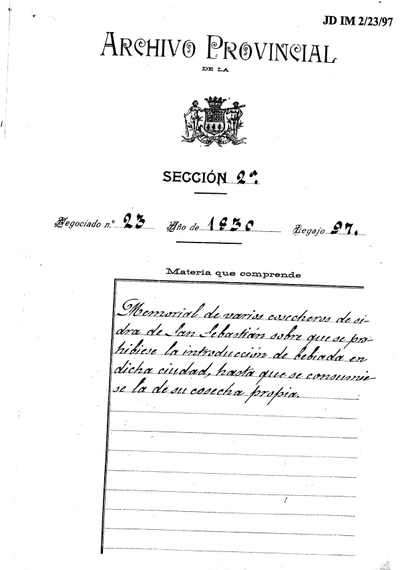 JD IM 2/23/97
ARCHIVO PROVINCIAL
DE LA
SECCIÓN 2ª.
Negociado n.º 23 Año de 1830 Legajo 97.
Materia que comprende
Memorial de varios cosecheros de si-
dra de San Sebastián sobre que se pro-
hibiese la introducción de bebiada en
dicha ciudad, hasta que se consumie-
se la de su cosecha propia.